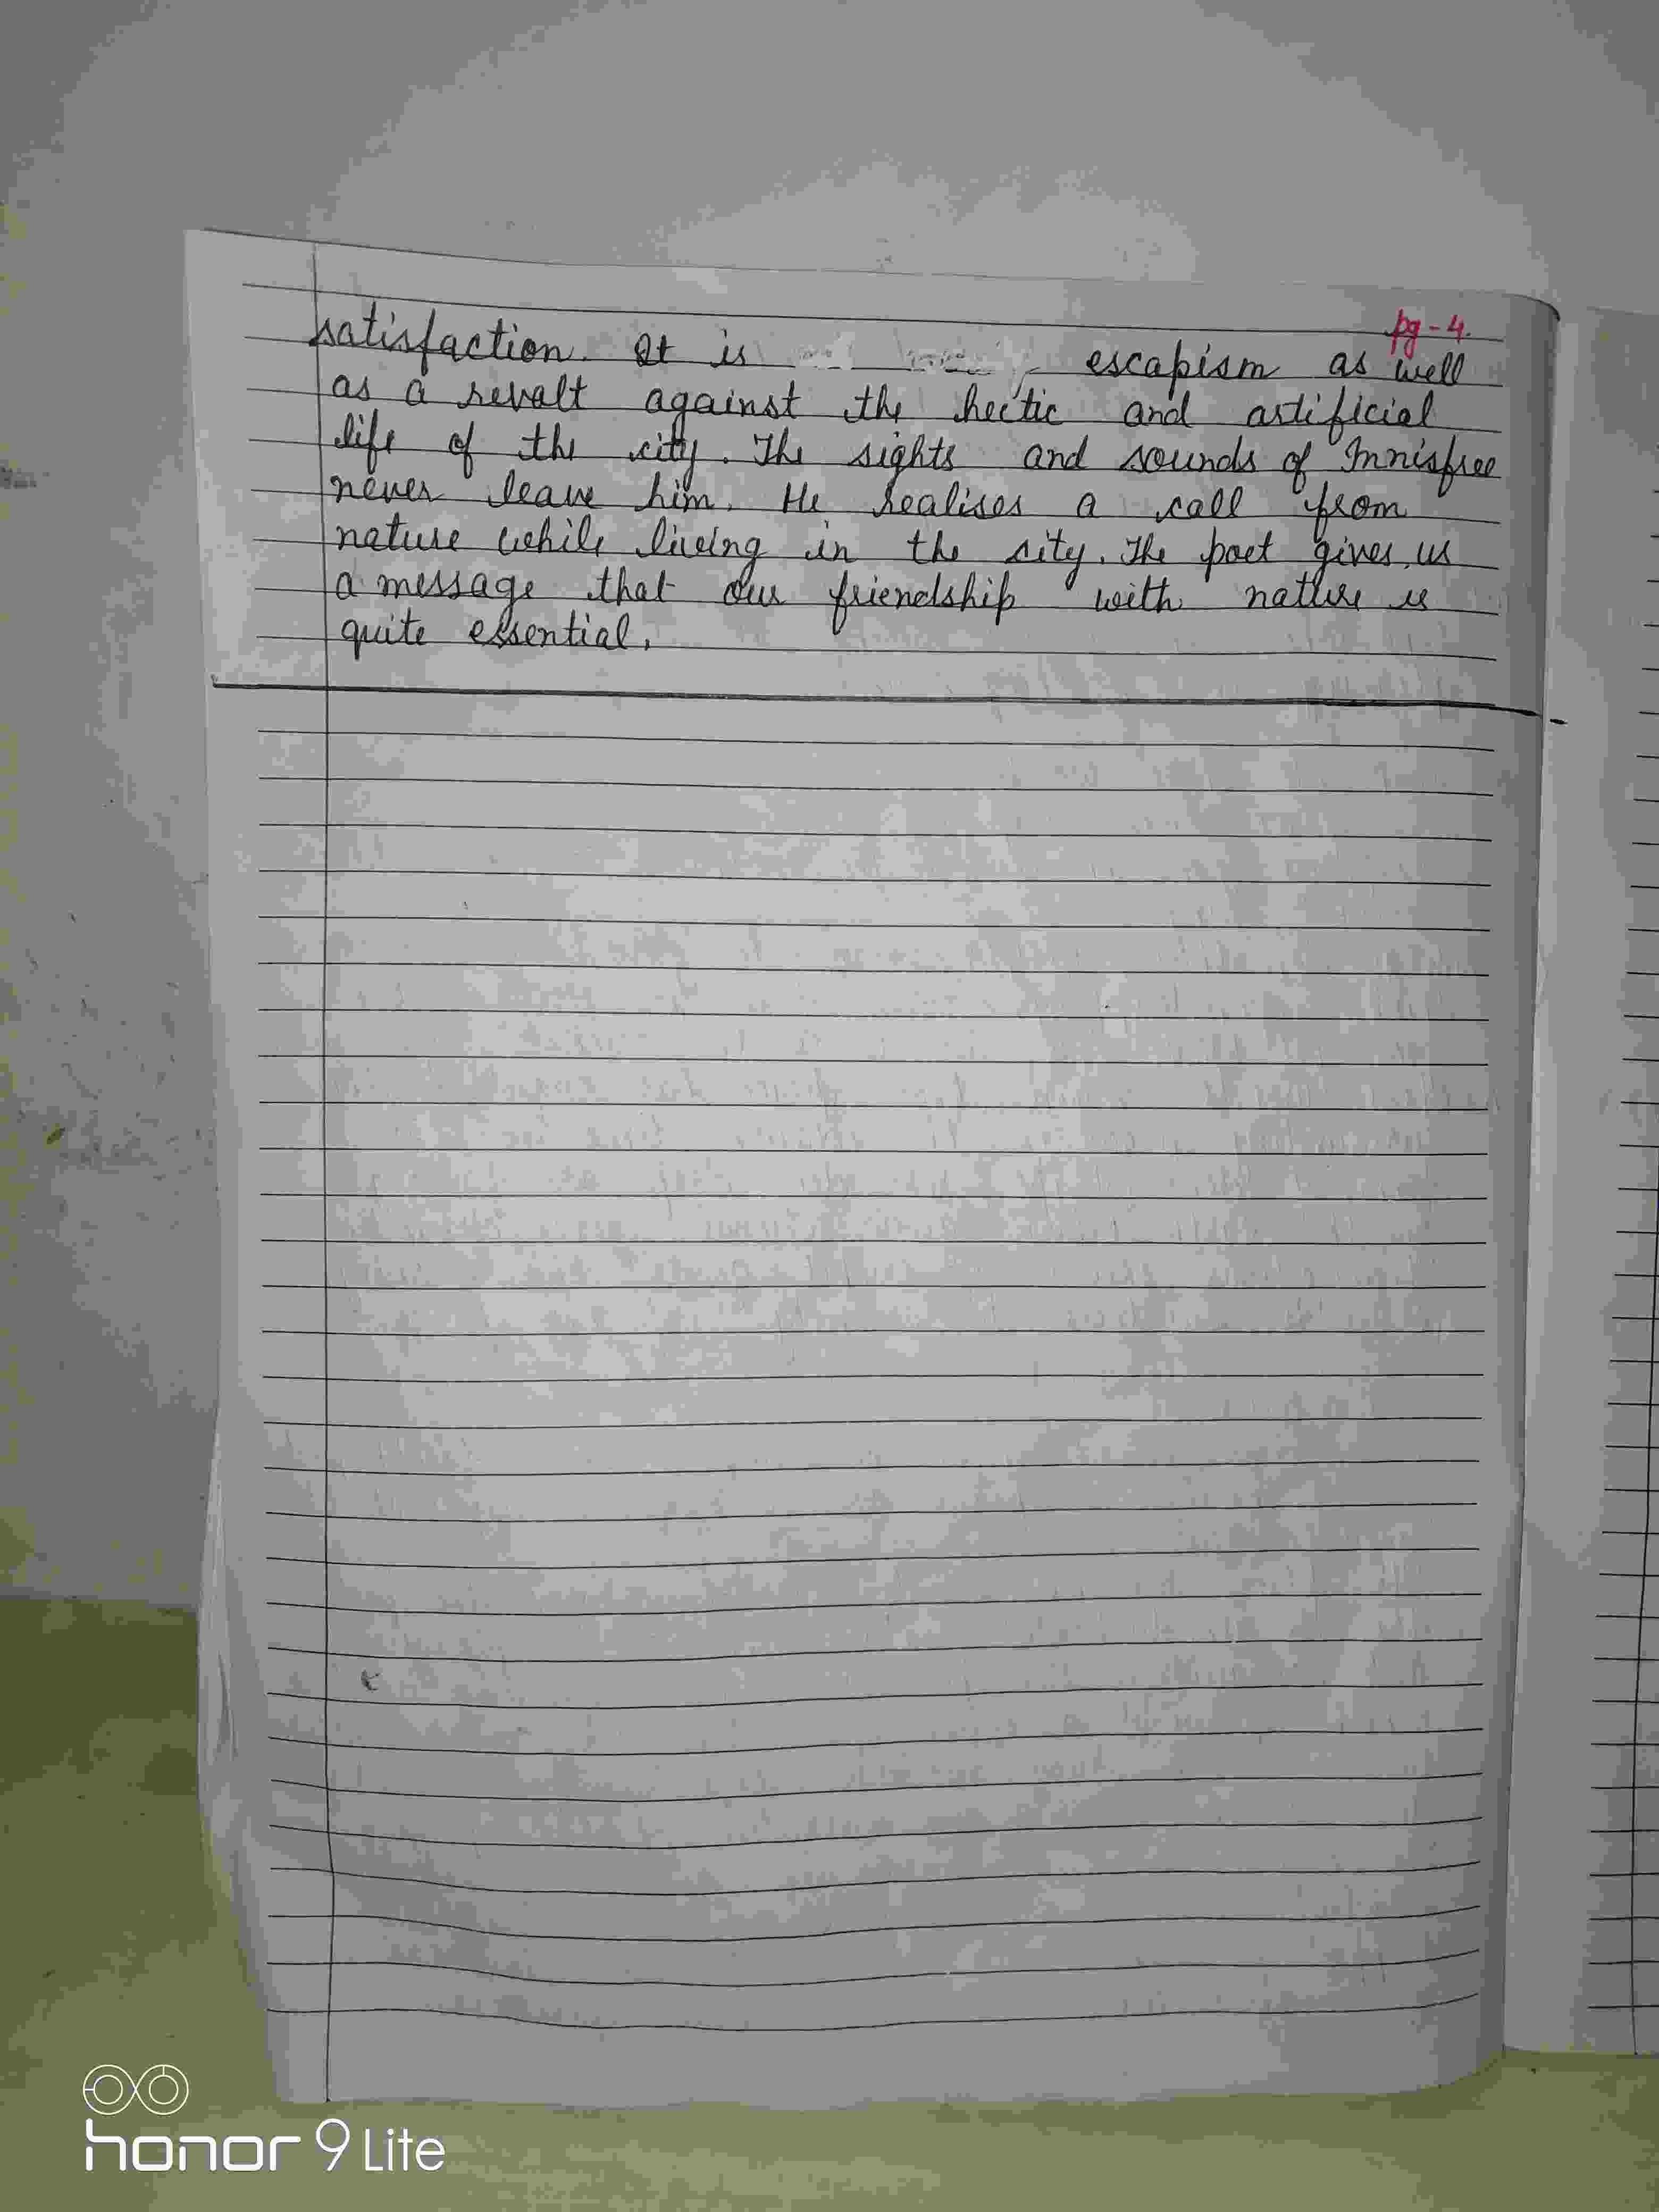 pg-4.
satisfaction. It is escapism as well
as a revolt against the hectic and artificial
life of the city. The sights and sounds of Innisfree
never leave him. He realises a call from
nature while living in the city. The poet gives us
a message that our friendship with nature is
quite essential.
honor 9 Lite